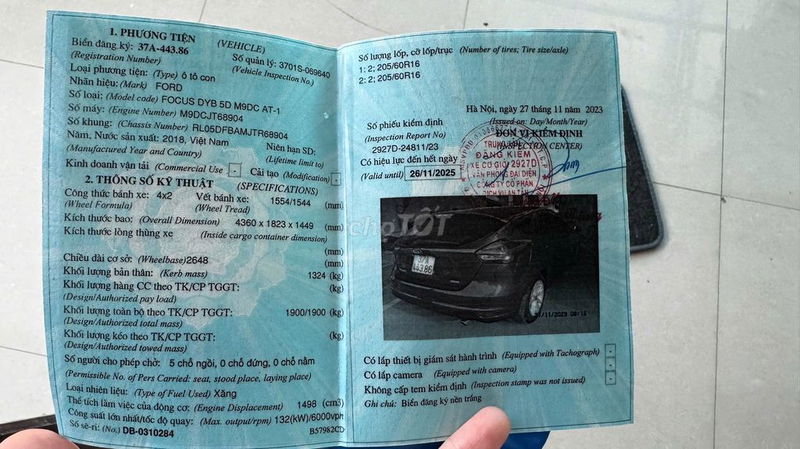 1. PHƯƠNG TIỆN (VEHICLE)
Biển đăng ký: 37A-443.86
(Registration Number)
Số quản lý: 3701S-069640
(Vehicle Inspection No.)
Loại phương tiện: (Type) ô tô con
Nhãn hiệu: (Mark) FORD
Số loại: (Model code) FOCUS DYB 5D M9DC AT-1
Số máy: (Engine Number) M9DCJT68904
Số khung: (Chassis Number) RL05DFBAMJTR68904
Năm, Nước sản xuất: 2018, Việt Nam
(Manufactured Year and Country)
Niên hạn SD:
(Lifetime limit to)
Kinh doanh vận tải (Commercial Use) -
Cải tạo (Modification) -
2. THÔNG SỐ KỸ THUẬT (SPECIFICATIONS)
Công thức bánh xe: 4x2
(Wheel Formula)
Vết bánh xe: 1554/1544 (mm)
(Wheel Tread)
Kích thước bao: (Overall Dimension) 4360 x 1823 x 1449 (mm)
Kích thước lòng thùng xe (Inside cargo container dimension)
(mm)
Chiều dài cơ sở: (Wheelbase) 2648 (mm)
Khối lượng bản thân: (Kerb mass) 1324 (kg)
Khối lượng hàng CC theo TK/CP TGGT: (kg)
(Design/Authorized pay load)
Khối lượng toàn bộ theo TK/CP TGGT: 1900/1900 (kg)
(Design/Authorized total mass)
Khối lượng kéo theo TK/CP TGGT: (kg)
(Design/Authorized towed mass)
Số người cho phép chở: 5 chỗ ngồi, 0 chỗ đứng, 0 chỗ nằm
(Permissible No. of Pers Carried: seat, stood place, laying place)
Loại nhiên liệu: (Type of Fuel Used) Xăng
Thể tích làm việc của động cơ: (Engine Displacement) 1498 (cm3)
Công suất lớn nhất/tốc độ quay: (Max. output/rpm) 132(kW)/6000vph
Số sê-ri: (No.) DB-0310284
B57982CD
Số lượng lốp, cỡ lốp/trục (Number of tires; Tire size/axle)
1: 2; 205/60R16
2: 2; 205/60R16
Hà Nội, ngày 27 tháng 11 năm 2023
(Issued on: Day/Month/Year)
Số phiếu kiểm định
(Inspection Report No)
2927D-24811/23
ĐƠN VỊ KIỂM ĐỊNH
(INSPECTION CENTER)
Có hiệu lực đến hết ngày
(Valid until) 26/11/2025
TRUNG TÂM
ĐĂNG KIỂM
XE CƠ GIỚI 2927D
VĂN PHÒNG ĐẠI DIỆN
CÔNG TY CỔ PHẦN
chợTỐT
37A
443.86
Có lắp thiết bị giám sát hành trình (Equipped with Tachograph) -
Có lắp camera (Equipped with camera) -
Không cấp tem kiểm định (Inspection stamp was not issued) -
Ghi chú: Biển đăng ký nền trắng